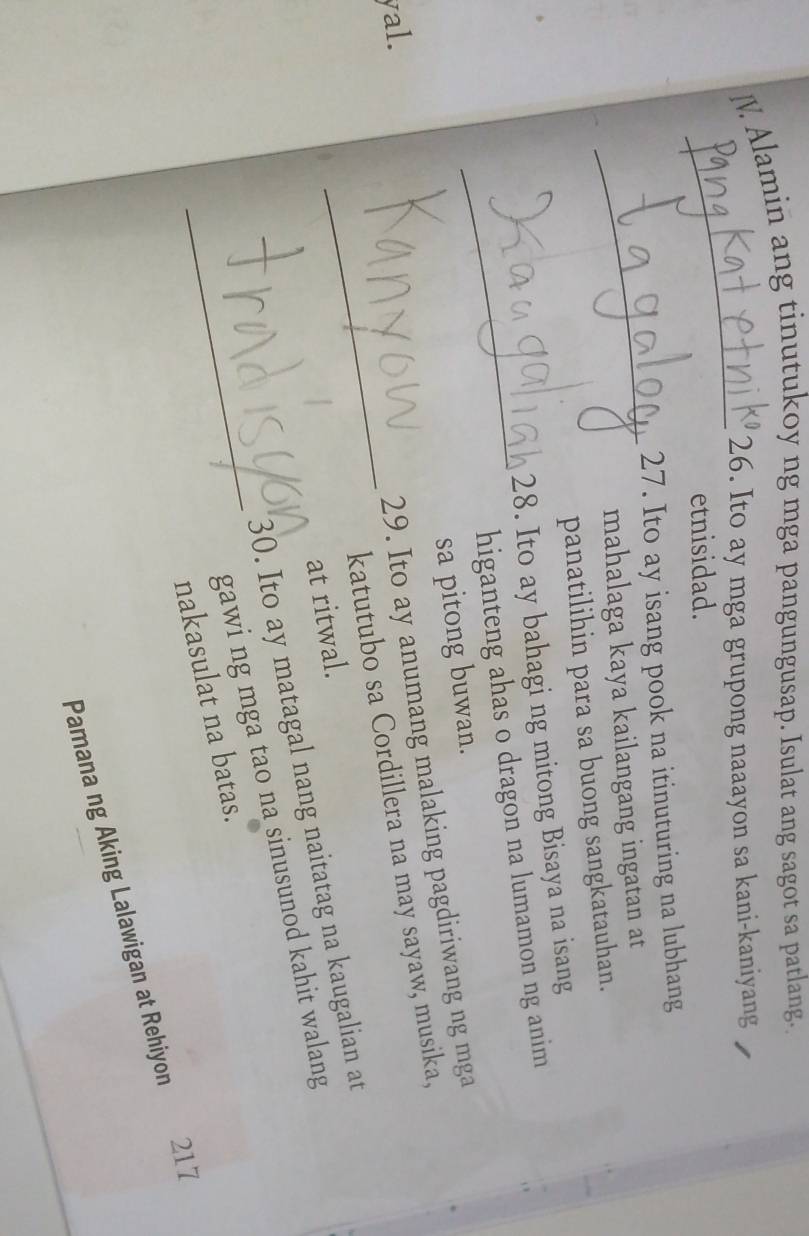 yal.
IV. Alamin ang tinutukoy ng mga pangungusap. Isulat ang sagot sa patlang.
Pangkat etniko 26. Ito ay mga grupong naaayon sa kani-kaniyang
etnisidad.
tagalog 27. Ito ay isang pook na itinuturing na lubhang
mahalaga kaya kailangang ingatan at
panatilihin para sa buong sangkatauhan.
Kaugalian 28. Ito ay bahagi ng mitong Bisaya na isang
higanteng ahas o dragon na lumamon ng anim
sa pitong buwan.
Kanyow 29. Ito ay anumang malaking pagdiriwang ng mga
katutubo sa Cordillera na may sayaw, musika,
at ritwal.
tradisyon 30. Ito ay matagal nang naitatag na kaugalian at
gawi ng mga tao na sinusunod kahit walang
nakasulat na batas.
Pamana ng Aking Lalawigan at Rehiyon 217